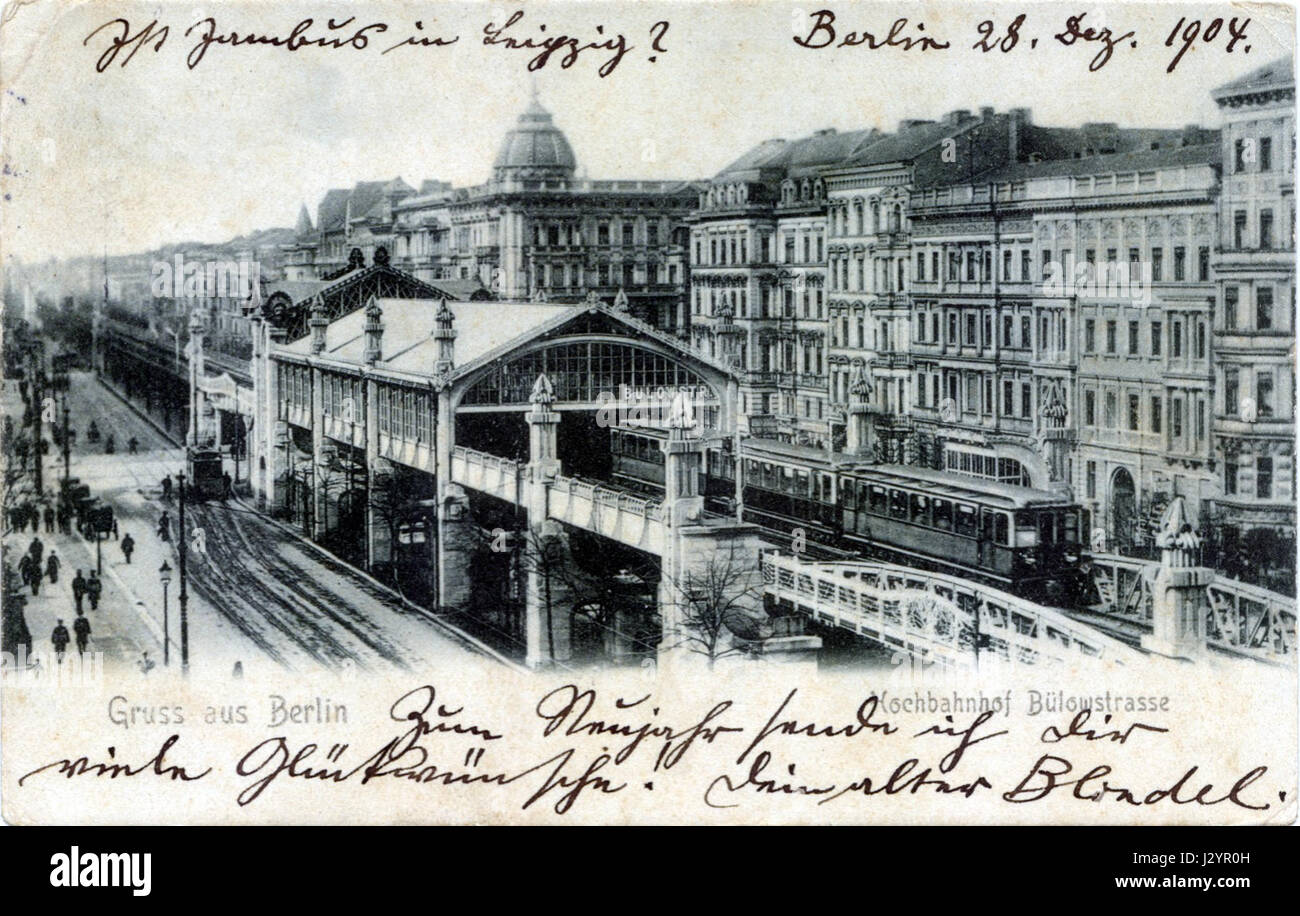 Ist Jambus in Leipzig? Berlin 28. Dez. 1904.
BÜLOWSTR.
Gruss aus Berlin
Hochbahnhof Bülowstrasse
Zum Neujahr sende ich Dir
viele Glückwünsche! Dein alter Blondel.
alamy
a
alamy
Image ID: J2YR0H
www.alamy.com